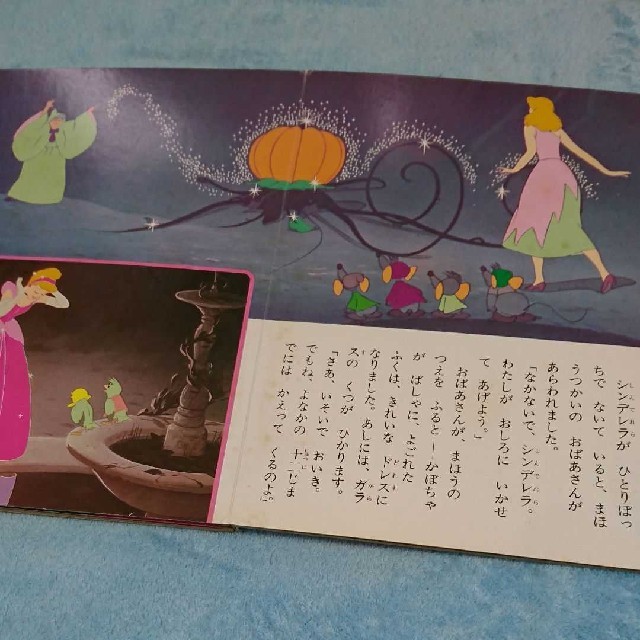 シンデレラが ひとりぼっ
ちで ないて いると、まほ
うつかいの おばあさんが
あらわれました。
「なかないで、シンデレラ。
わたしが おしろに いかせ
て あげよう。」
おばあさんが、まほうの
つえを ふると―かぼちゃ
が ばしゃに、よごれた
ふくは、きれいな ドレスに
なりました。あしには、ガラ
スの くつが ひかります。
「さあ、いそいで おいき。
でもね、よなかの 十二じま
でには かえって くるのよ。」